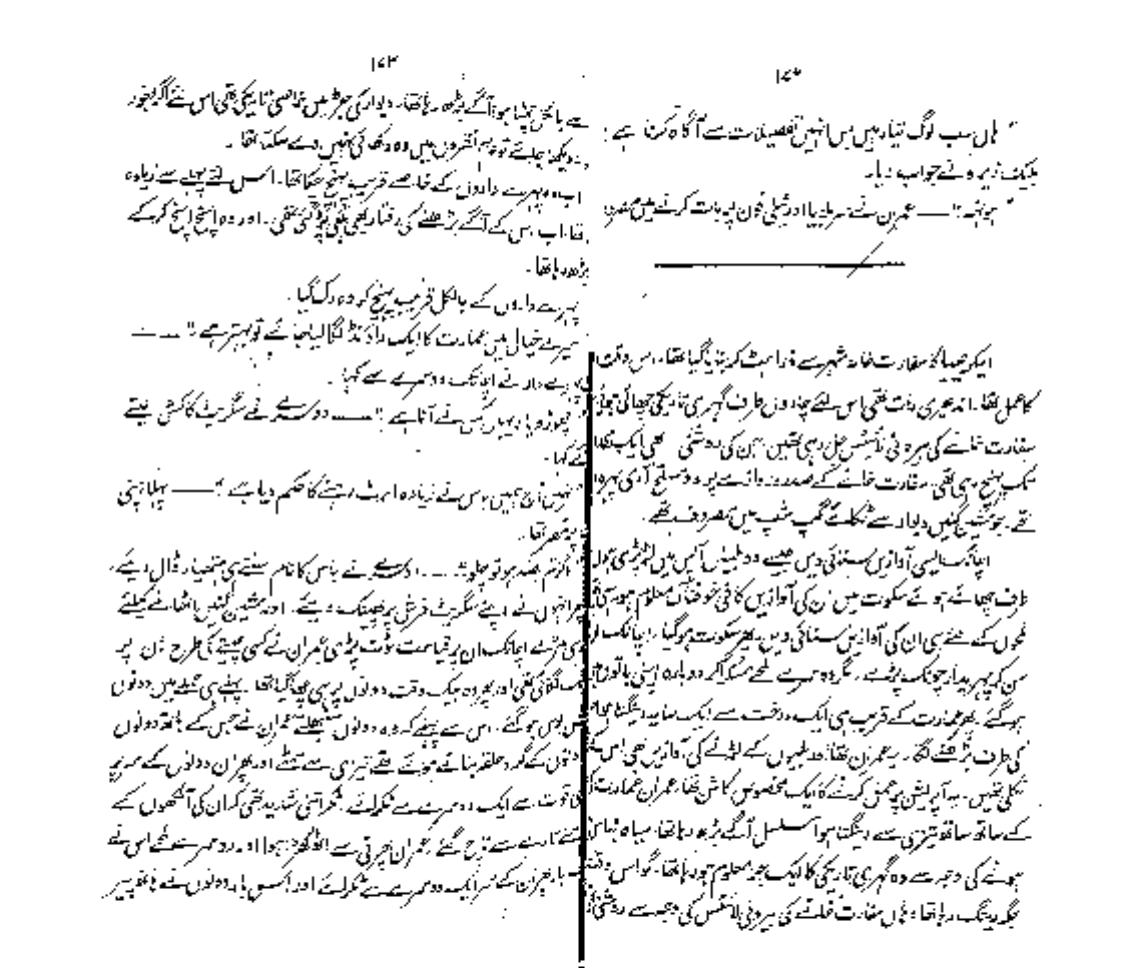 ۱۷۲
" ہاں سب لوگ تیار ہیں بس انہیں تفصیلات سے آگاہ کرنا ہے "
بلیک زیرو نے جواب دیا۔
" ہونہہ " —— عمران نے سر ہلایا اور ٹیلی فون پہ بات کرنے میں مصروف
ایکریمیا کا سفارت خانہ شہر سے ذرا ہٹ کر بنایا گیا تھا۔ اس وقت
کا عمل تھا۔ اندھیری رات تھی اس لئے چاروں طرف گہری تاریکی چھائی ہوئی
سفارت خانے کی بیرونی لائٹس جل رہی تھیں، جن کی روشنی بھی ایک
تک پہنچ رہی تھی۔ سفارت خانے کے صدر دروازے پر دو مسلح آدمی پہرہ
تھے۔ جو مشین گنیں دیوار سے ٹکائے گپ شپ میں مصروف تھے۔
اچانک ایسی آوازیں سنائی دیں جیسے دو بلیاں آپس میں لڑ پڑی ہوں
طرف چھائے ہوئے سکوت میں ان کی آوازیں کافی خوفناک معلوم ہو رہی
لمحوں کے لئے ہی ان کی آوازیں سنائی دیں، پھر سکوت ہو گیا۔ اچانک
سن کر پہریدار چونک پڑے۔ مگر دوسرے لمحے مسکرا کر دوبارہ اپنی باتوں میں
ہو گئے۔ پھر عمارت کے قریب ہی ایک درخت سے ایک سایہ رینگتا ہوا
کی طرف بڑھنے لگا۔ یہ عمران تھا، بلیوں کے لڑنے کی آوازیں بھی اس نے
نکلی تھیں۔ یہ آپریشن پر عمل کرنے کا ایک مخصوص کاشن تھا، عمران عمارت
کے ساتھ ساتھ تیزی سے رینگتا ہوا مسلسل آگے بڑھ رہا تھا۔ سیاہ لباس
ہونے کی وجہ سے وہ گہری تاریکی کا ایک جز معلوم ہو رہا تھا۔ گو اس وقت
جگہ رینگ رہا تھا، وہاں سفارت خانے کی بیرونی لائٹس کی وجہ سے روشنی
۱۷۳
سے بالکل چمٹا ہوا آگے بڑھ رہا تھا۔ دیوار کی جڑ میں خاصی تاریکی تھی اس لئے اگر بغور
نہ دیکھا جائے تو عام نظروں میں وہ دکھائی نہیں دے سکتا تھا۔
اب وہ پہرے داروں کے خاصے قریب پہنچ چکا تھا۔ اس لئے پہلے سے زیادہ
تھا، اب اس کے آگے بڑھنے کی رفتار بھی ہلکی پڑ گئی تھی۔ اور وہ انچ انچ کر کے
بڑھ رہا تھا۔
پہرے داروں کے بالکل قریب پہنچ کر وہ رک گیا۔
میرے خیال میں عمارت کا ایک راؤنڈ لگا لیا جائے تو بہتر ہے " ——
پہرے دار نے اچانک دوسرے سے کہا۔
چھوڑو یار یہاں کس نے آنا ہے " —— دوسرے نے سگریٹ کا کش لیتے
ہوئے کہا۔
نہیں آج ہمیں باس نے زیادہ الرٹ رہنے کا حکم دیا ہے " —— پہلا اپنی
بات پر مصر تھا۔
اگر تم بضد ہو تو چلو " —— دوسرے نے باس کا نام سنتے ہی ہتھیار ڈال دیئے۔
پھر انہوں نے اپنے سگریٹ فرش پر پھینک دیئے۔ اور مشین گنیں اٹھانے کیلئے
ہی مڑے اچانک ان پر قیامت ٹوٹ پڑی عمران نے کسی چیتے کی طرح ان پر
چھلانگ لگائی تھی اور پھر وہ بیک وقت دونوں پر ہی چھا گیا تھا۔ پہلے ہی حملے میں دونوں
بوس ہو گئے۔ اس سے پہلے کہ وہ دونوں سنبھلتے عمران نے جس کے ہاتھ دونوں
کے گرد حلقہ بنائے ہوئے تھے تیزی سے سمٹے اور پھر ان دونوں کے سر پر
قوت سے ایک دوسرے سے ٹکرائے۔ ٹکر اتنی شدید تھی کہ ان کی آنکھوں کے
تارے سے ناچ گئے۔ عمران پھرتی سے اٹھ کھڑا ہوا اور دوسرے لمحے اس نے
بار پھر ان کے سر ایک دوسرے سے ٹکرائے اور اس بار دونوں نے ہاتھ پیر